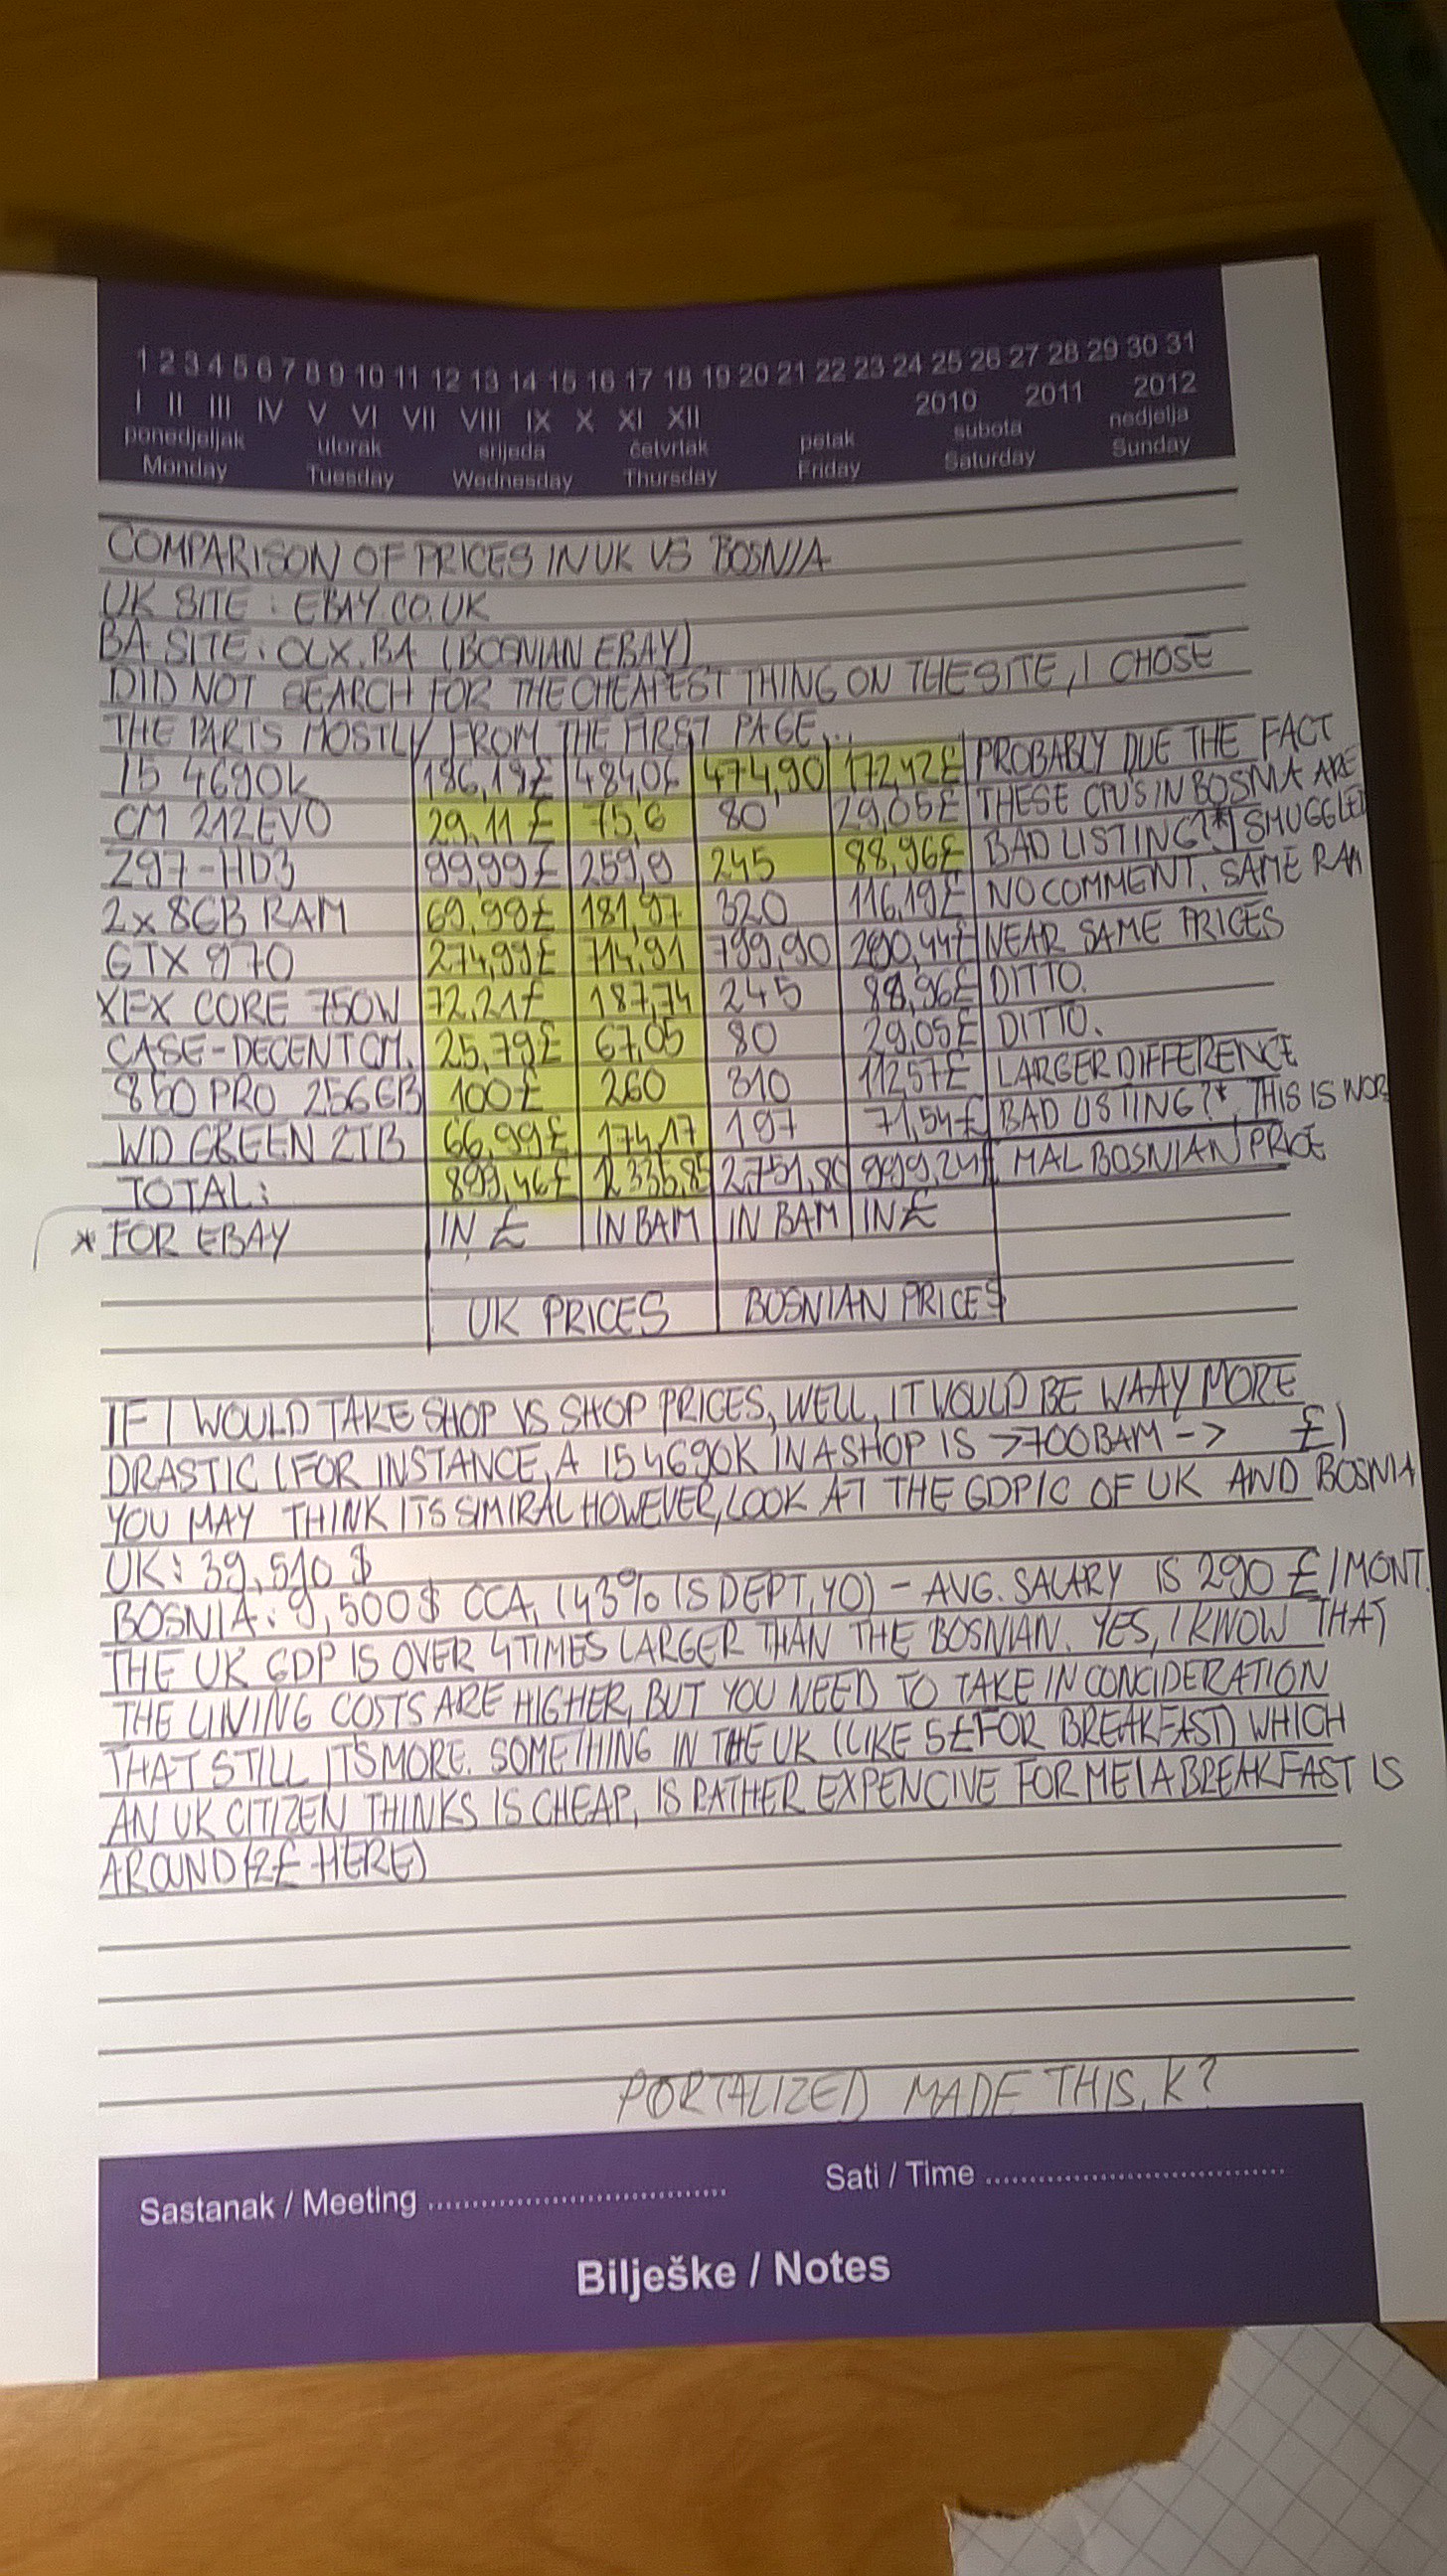 1 2 3 4 5 6 7 8 9 10 11 12 13 14 15 16 17 18 19 20 21 22 23 24 25 26 27 28 29 30 31
I II III IV V VI VII VIII IX X XI XII 2010 2011 2012
ponedjeljak utorak srijeda četvrtak petak subota nedjelja
Monday Tuesday Wednesday Thursday Friday Saturday Sunday
COMPARISON OF PRICES IN UK VS BOSNIA
UK SITE : EBAY.CO.UK
BA SITE: OLX.BA (BOSNIAN EBAY)
DID NOT SEARCH FOR THE CHEAPEST THING ON THE SITE, I CHOSE
THE PARTS MOSTLY FROM THE FIRST PAGE...
I5 4690K 186,19£ 484,06 474,90 172,42£ PROBABLY DUE THE FACT
CM 212 EVO 29,11£ 75,6 80 29,05£ THESE CPU'S IN BOSNIA ARE
Z97-HD3 99,99£ 259,9 245 88,96£ BAD LISTING?* SMUGGLED
2x8GB RAM 69,99£ 181,97 320 116,19£ NO COMMENT. SAME RAM
GTX 970 274,99£ 714,91 799,90 290,44£ NEAR SAME PRICES
XFX CORE 750W 72,21£ 187,74 245 88,96£ DITTO.
CASE-DECENT CM. 25,79£ 67,05 80 29,05£ DITTO.
850 PRO 256GB 100£ 260 310 112,57£ LARGER DIFFERENCE
WD GREEN 2TB 66,99£ 174,17 197 71,54£ BAD LISTING?*, THIS IS NOR
TOTAL: 899,46£ 2,335,85 2,751,80 999,24£ MAL BOSNIAN PRICE
* FOR EBAY IN £ IN BAM IN BAM IN £
UK PRICES BOSNIAN PRICES
IF I WOULD TAKE SHOP VS SHOP PRICES, WELL, IT WOULD BE WAAY MORE
DRASTIC (FOR INSTANCE, A I5 4690K IN A SHOP IS >700BAM -> £)
YOU MAY THINK ITS SIMIRAL HOWEVER, LOOK AT THE GDP/C OF UK AND BOSNIA
UK: 39,510 $
BOSNIA: 9,500$ CCA, (43% IS DEPT, YO) - AVG. SALARY IS 290 £/MONT.
THE UK GDP IS OVER 4 TIMES LARGER THAN THE BOSNIAN. YES, I KNOW THAT
THE LIVING COSTS ARE HIGHER, BUT YOU NEED TO TAKE IN CONCIDERATION
THAT STILL ITS MORE. SOMETHING IN THE UK (LIKE 5£ FOR BREAKFAST) WHICH
AN UK CITIZEN THINKS IS CHEAP, IS RATHER EXPENCIVE FOR ME (A BREAKFAST IS
AROUND 2£ HERE)
PORTALIZED MADE THIS, K?
Sastanak / Meeting Sati / Time
Bilješke / Notes